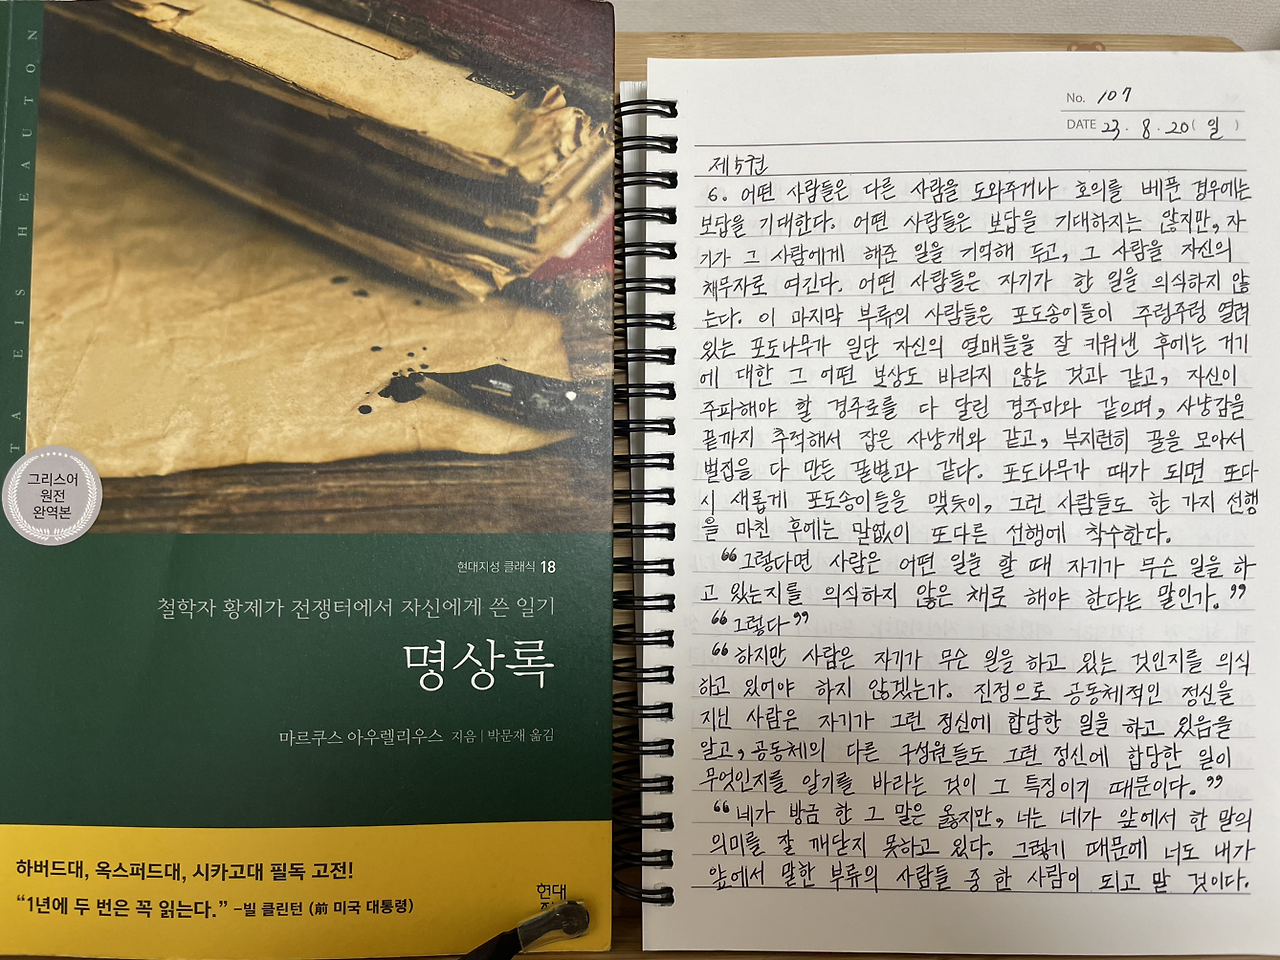 TA EIS HEAUTON
그리스어
원전
완역본
현대지성 클래식 18
철학자 황제가 전쟁터에서 자신에게 쓴 일기
명상록
마르쿠스 아우렐리우스 지음 | 박문재 옮김
하버드대, 옥스퍼드대, 시카고대 필독 고전!
“1년에 두 번은 꼭 읽는다.” –빌 클린턴 (前 미국 대통령)
현대
No. 107
DATE 23. 8. 20 ( 일 )
제5권
6. 어떤 사람들은 다른 사람을 도와주거나 호의를 베푼 경우에는
보답을 기대한다. 어떤 사람들은 보답을 기대하지는 않지만, 자
기가 그 사람에게 해준 일을 기억해 두고, 그 사람을 자신의
채무자로 여긴다. 어떤 사람들은 자기가 한 일을 의식하지 않
는다. 이 마지막 부류의 사람들은 포도송이들이 주렁주렁 열려
있는 포도나무가 일단 자신의 열매들을 잘 키워낸 후에는 거기
에 대한 그 어떤 보상도 바라지 않는 것과 같고, 자신이
주파해야 할 경주로를 다 달린 경주마와 같으며, 사냥감을
끝까지 추적해서 잡은 사냥개와 같고, 부지런히 꿀을 모아서
벌집을 다 만든 꿀벌과 같다. 포도나무가 때가 되면 또다
시 새롭게 포도송이들을 맺듯이, 그런 사람들도 한 가지 선행
을 마친 후에는 말없이 또다른 선행에 착수한다.
“그렇다면 사람은 어떤 일을 할 때 자기가 무슨 일을 하
고 있는지를 의식하지 않은 채로 해야 한다는 말인가.”
“그렇다”
“하지만 사람은 자기가 무슨 일을 하고 있는 것인지를 의식
하고 있어야 하지 않겠는가. 진정으로 공동체적인 정신을
지닌 사람은 자기가 그런 정신에 합당한 일을 하고 있음을
알고, 공동체의 다른 구성원들도 그런 정신에 합당한 일이
무엇인지를 알기를 바라는 것이 그 특징이기 때문이다.”
“네가 방금 한 그 말은 옳지만, 너는 네가 앞에서 한 말의
의미를 잘 깨닫지 못하고 있다. 그렇기 때문에 너도 내가
앞에서 말한 부류의 사람들 중 한 사람이 되고 말 것이다.